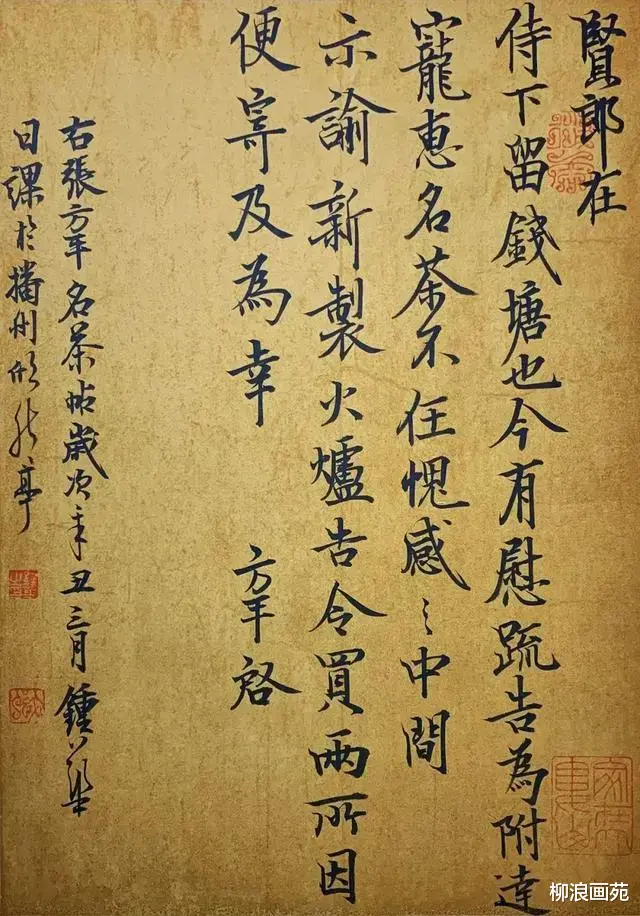 賢郎在
侍下留錢塘也今有慰疏告為附達
寵惠名茶不任愧感〻中間
示諭新製火爐告令買兩所因
便寄及為幸　方平啓
右張方平名茶帖歲次辛丑三月鍾華
日課於播州　然亭
柳浪画苑